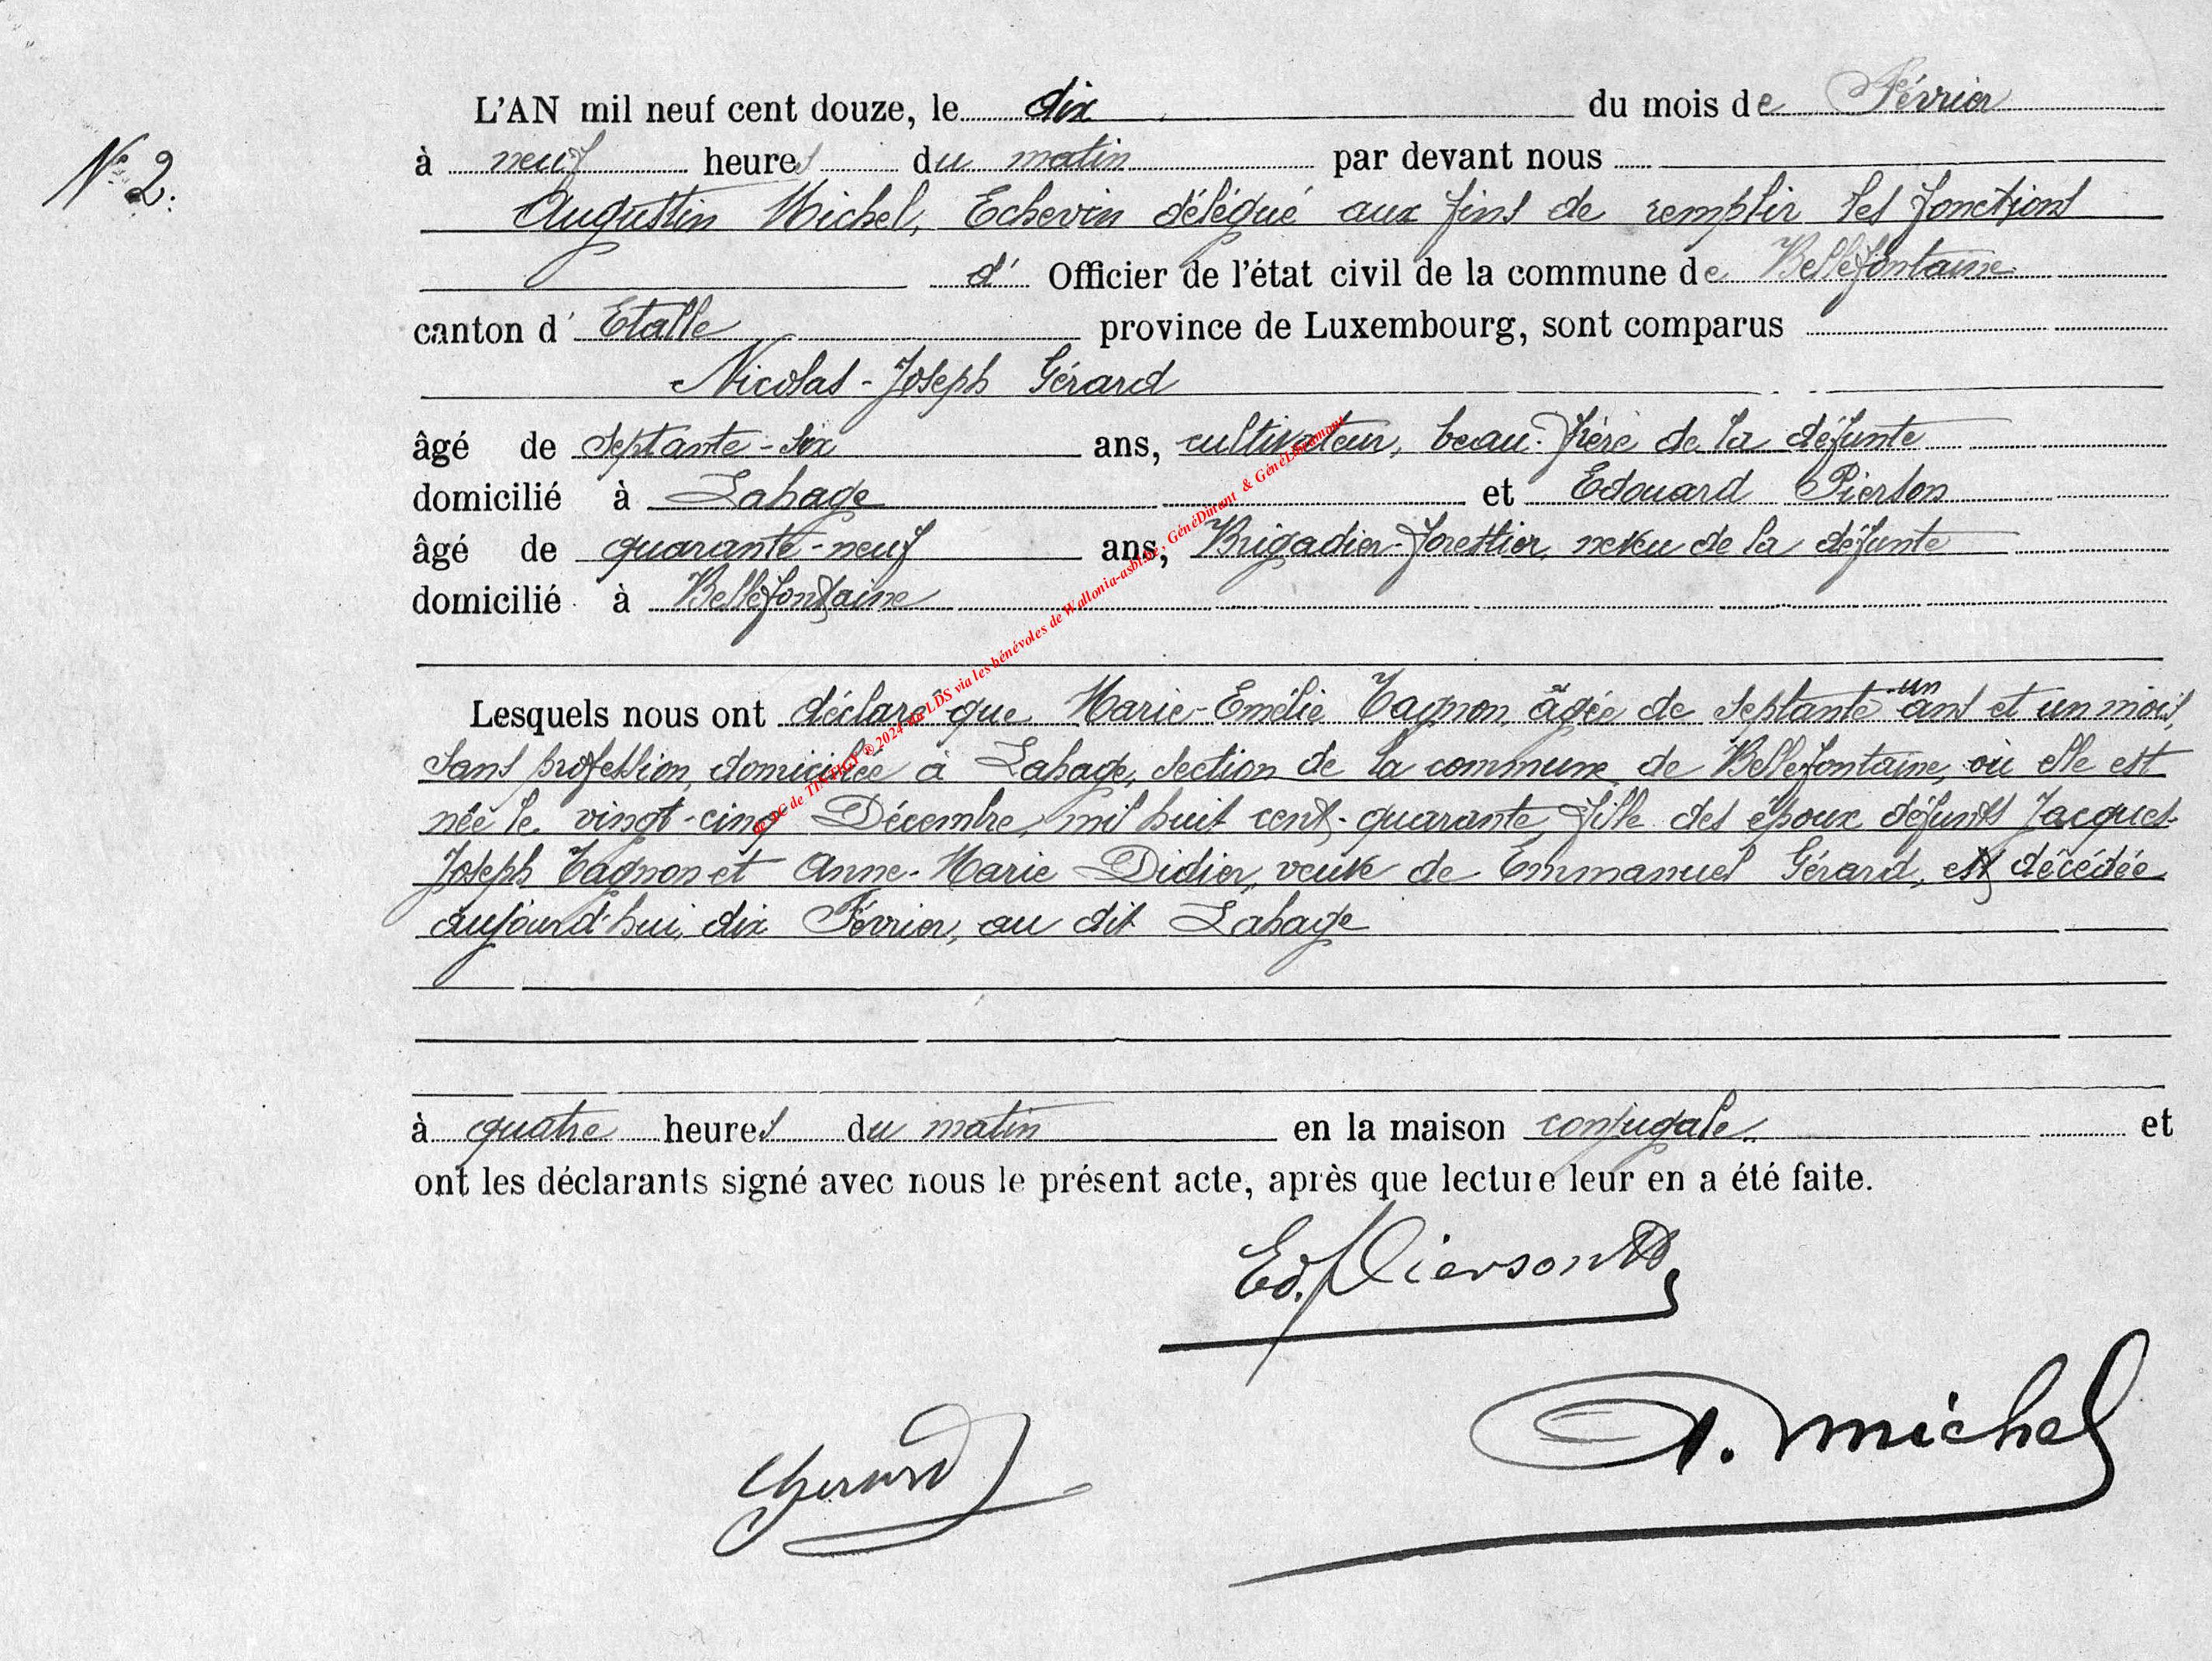 L'AN mil neuf cent douze, le dix du mois de Février
N° 2.
à neuf heures du matin par devant nous
Augustin Michel, Echevin délégué aux fins de remplir les fonctions
d' Officier de l'état civil de la commune de Bellefontaine
canton d' Etalle province de Luxembourg, sont comparus
Nicolas-Joseph Gérard
âgé de septante-six ans, cultivateur, beau-frère de la défunte
domicilié à Lahage et Edouard Pierson
âgé de quarante-neuf ans, Brigadier-forestier, neveu de la défunte
domicilié à Bellefontaine
Lesquels nous ont déclaré que Marie-Emélie Tagnon, âgée de septante-un ans et un mois,
sans profession, domiciliée à Lahage, section de la commune de Bellefontaine, où elle est
née le vingt-cinq Décembre, mil huit cent-quarante, fille des époux défunts Jacques-
Joseph Tagnon et Anne-Marie Didier, veuve de Emmanuel Gérard, est décédée
aujourd'hui, dix Février, au dit Lahage
à quatre heures du matin en la maison conjugale. et
ont les déclarants signé avec nous le présent acte, après que lecture leur en a été faite.
Ed. Pierson
A. Michel
Gerard
de TINTIGY © 2024 du LDS via les bénévoles de Wallonia-asbl.be, GénéDinant & GénéLibramont